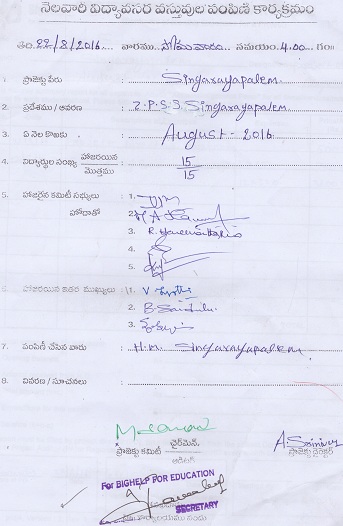 నెలవారీ విద్యావసర వస్తువుల పంపిణీ కార్యక్రమం
తేది: 22/8/2016 వారము సోమవారం సమయం: 4.00 గం॥
1. ప్రాజెక్టు పేరు : Singarayapalem
2. ప్రదేశము / ఆవరణ : Z.P.S.S Singarayapalem
3. ఏ నెల కొఱకు : August - 2016
4. విద్యార్థుల సంఖ్య హాజరయిన / మొత్తము : 15 / 15
5. హాజరైన కమిటీ సభ్యులు : 1.
హోదాతో 2.
3.
4.
5.
6. హాజరయిన ఇతర ముఖ్యులు : 1. V Jyothi
2. B
3.
7. పంపిణీ చేసిన వారు : H.M. Singarayapalem
8. వివరణ / సూచనలు :
ప్రాజెక్టు కమిటీ ఛైర్‌మెన్,
A. Srinivas
ప్రాజెక్టు డైరెక్టర్
For BIGHELP FOR EDUCATION
SECRETARY